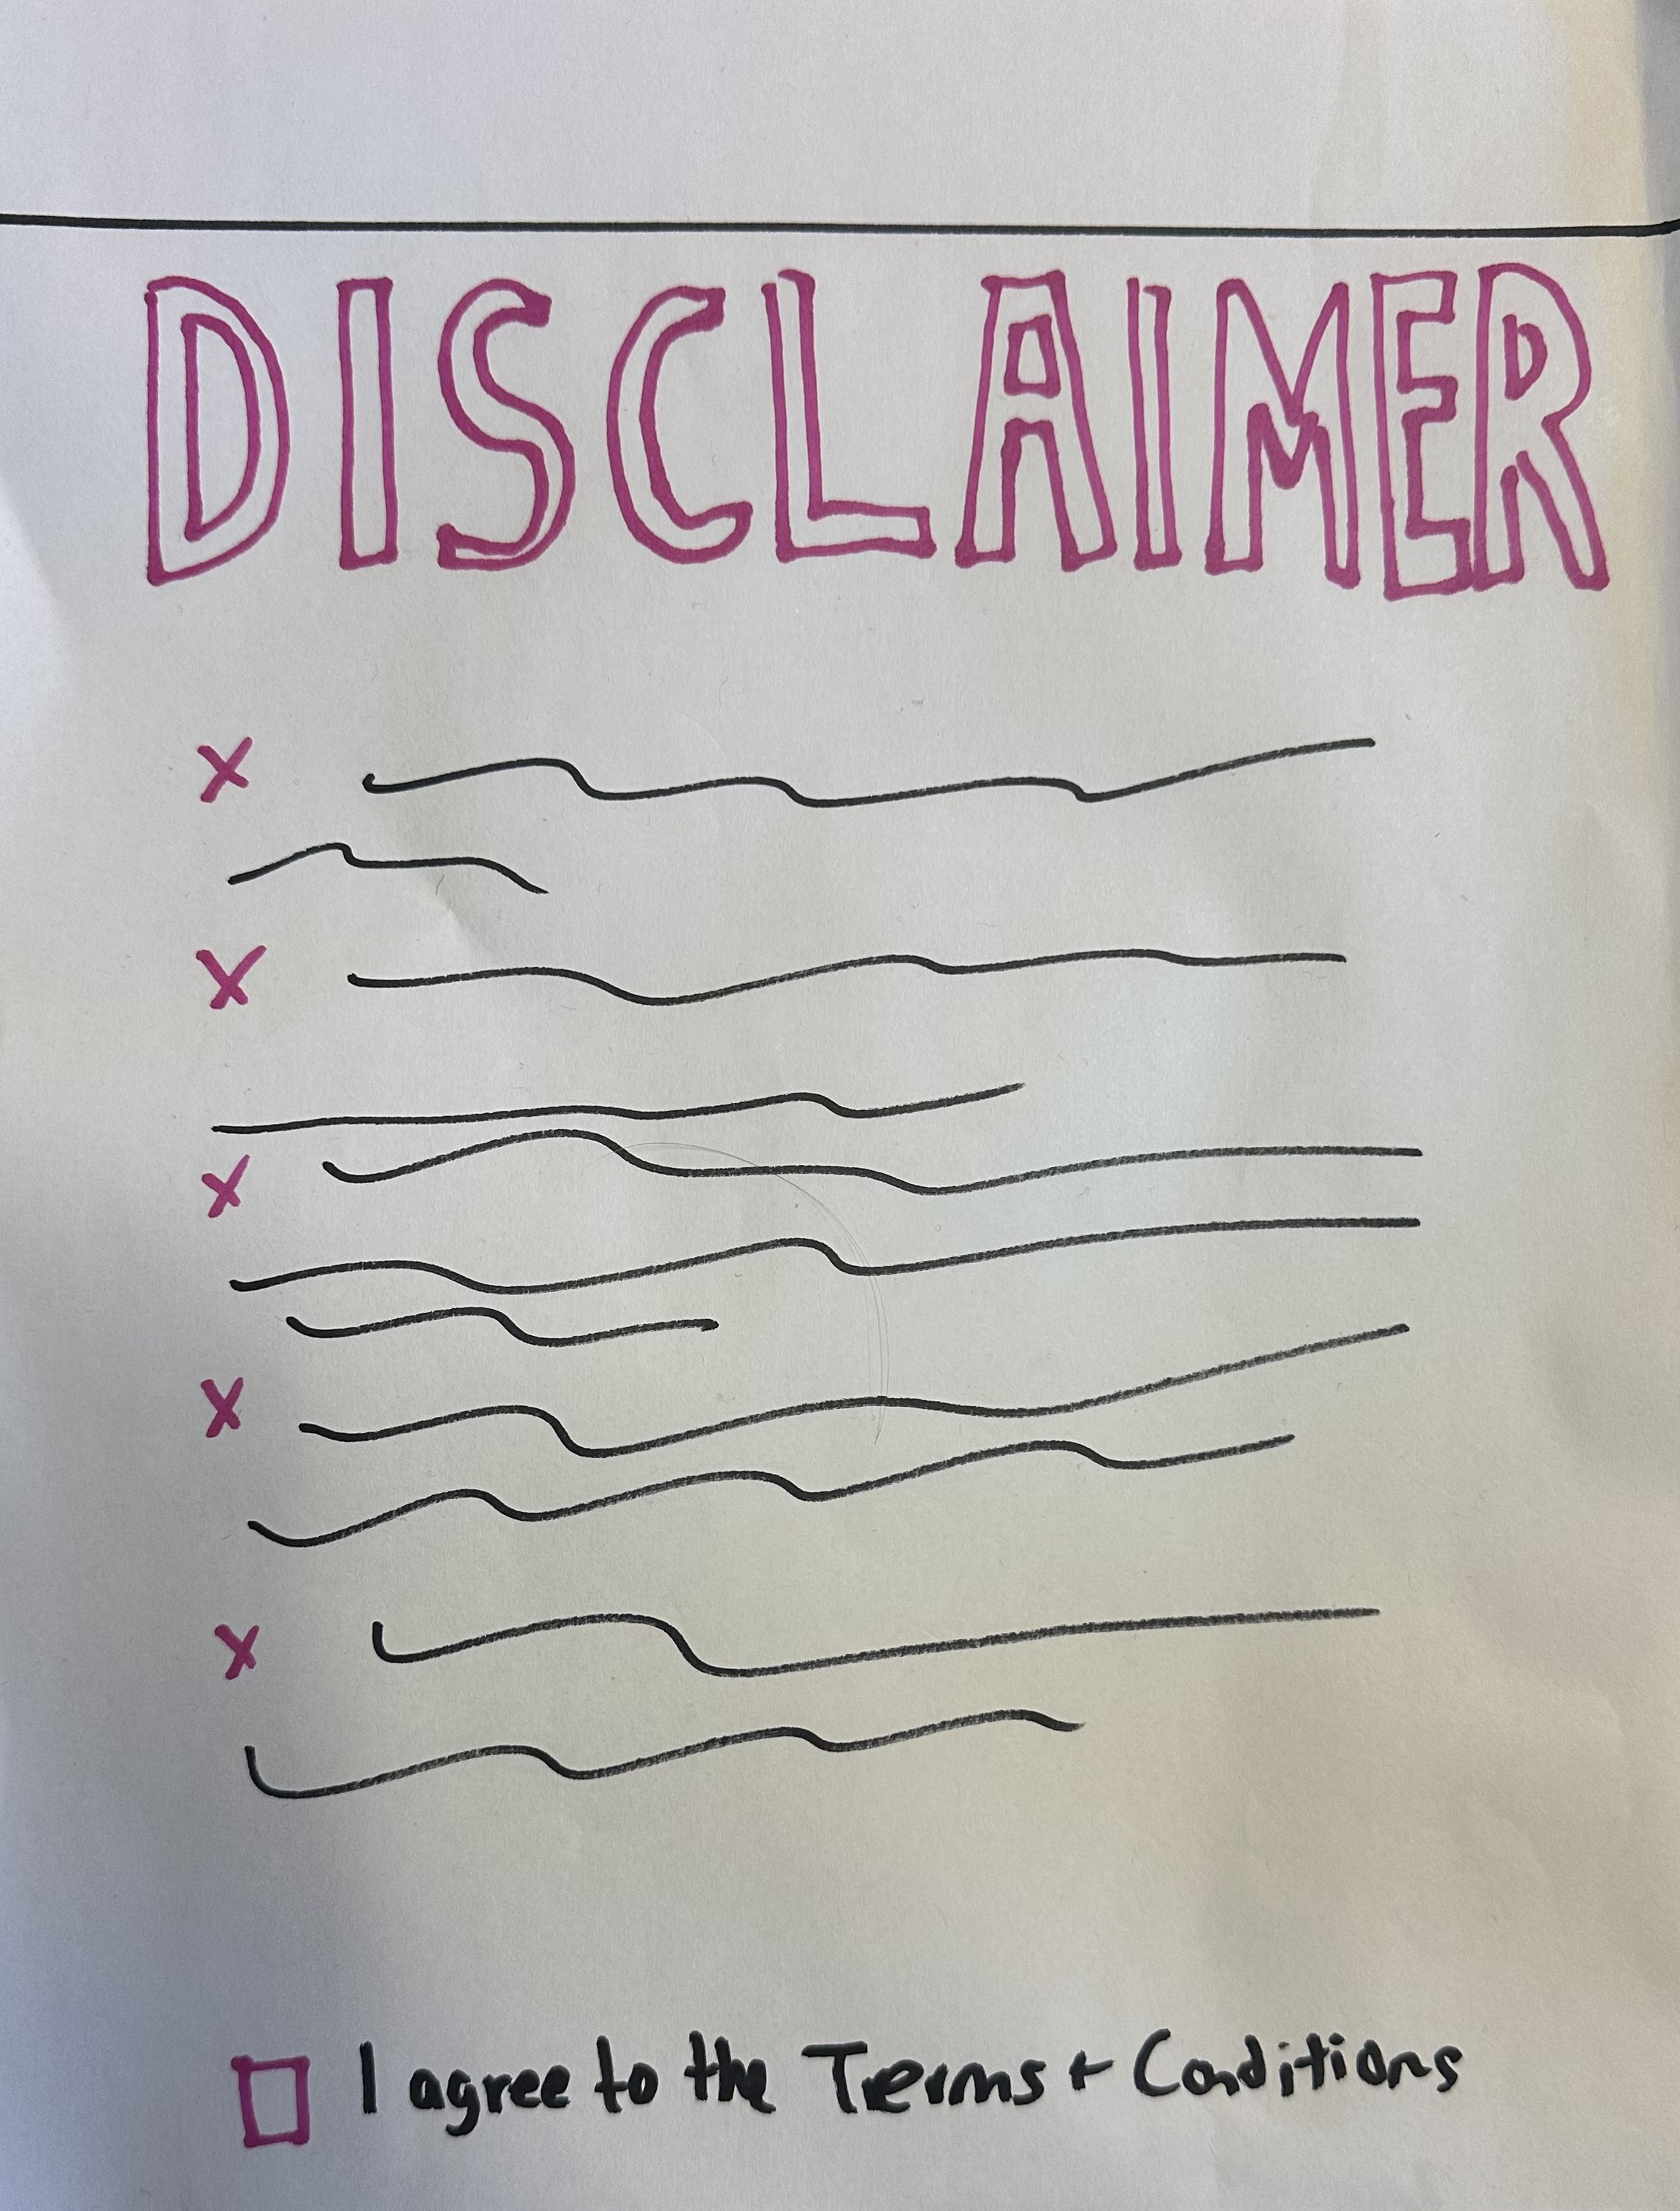 DISCLAIMER
x
x
x
x
x
I agree to the Terms + Conditions